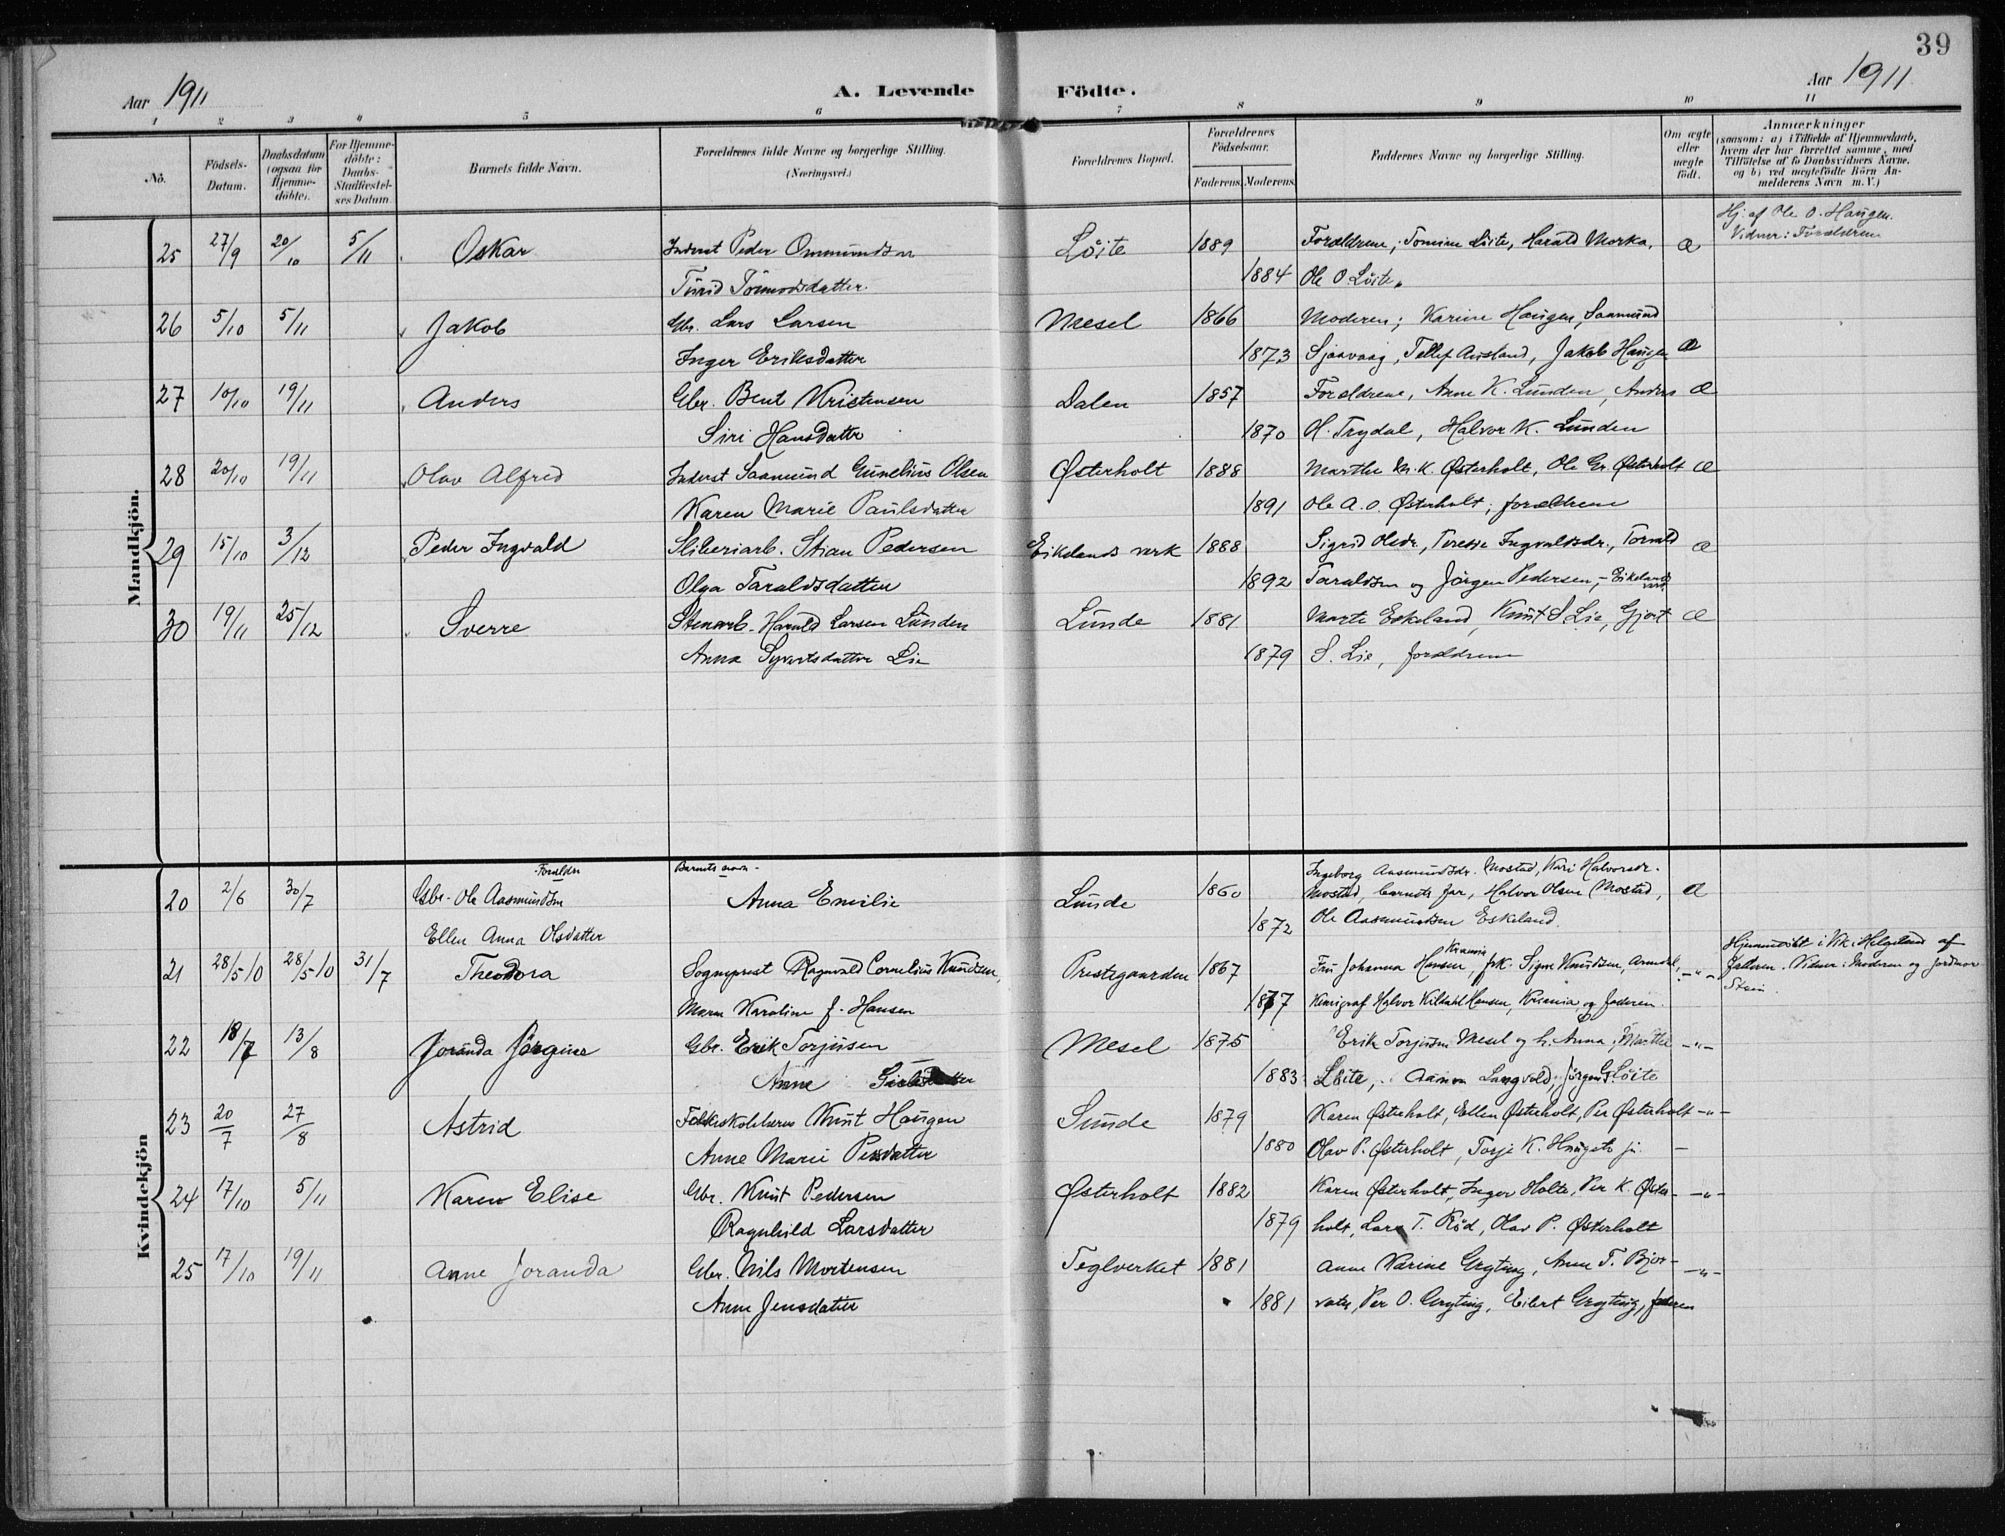 39
Aar 1911
A. Levende Födte.
Aar 1911
1 2 3 4 5 6 7 8 9 10 11
No.
Födsels-Datum.
Daabsdatum (ogsaa for Hjemmedöbte).
For Hjemmedöbte: Daabs-Stadfæstelses Datum
Barnets fulde Navn.
Forældrenes fulde Navne og borgerlige Stilling. (Næringsvei.)
Forældrenes Bopæl.
Forældrenes Födselsaar.
Faderens. Moderens.
Faddernes Navne og borgerlige Stilling.
Om ægte eller uægte födt.
Anmærkninger
(saasom: a) i Tilfælde af Hjemmedaab, hvem der har forrettet samme, med Tilföielse af to Daabsvidners Navne, og b) ved uægtefödte Börn Anmelderens Navn m. V.)
Mandkjön.
25 27/9 20/10 5/11 Oskar Inderst Peder Ommundsen Löite 1889 Forældrene, Tomine Löite, Harald Morka, æ Hj. af Ole O. Haugen.
Vidner: Forældrene
Turid Tormodsdatter 1884 Ole O. Löite
26 5/10 5/11 Jakob Gbr. Lars Larsen Mesel 1866 Moderen; Karine Haugen, Saamund
Inger Eriksdatter 1873 Sjaavaag, Tellef Ausland, Jakob Haugen æ
27 10/10 19/11 Anders Gbr. Bent Kristensen Dalen 1857 Forældrene, Anne K. Lunden, Anders æ
Siri Hansdatter 1870 H. Trydal, Halvor K. Lunden
28 20/10 19/11 Olav Alfred Inderst Saamund Gunelius Olsen Østerholt 1888 Marthe M. K. Østerholt, Ole Gr. Østerholt æ
Karen Marie Paulsdatter 1891 Ole A. O. Østerholt, forældrene
29 15/10 3/12 Peder Ingvald Sliberiarb. Stian Pedersen Eikelands verk 1888 Sigrid Olsdr., Terese Ingvaldsdr., Torvald æ
Olga Taraldsdatter 1892 Taraldsen og Jörgen Pedersen, - Eikelands verk
30 19/11 25/12 Sverre Stenarb. Harald Larsen Lunden Lunde 1881 Marte Eskeland, Knut S. Lie, Gjert æ
Anna Syvertsdatter Lie 1879 S. Lie, forældrene
Kvindekjön
Forældre Barnets navn
20 2/6 30/7 Gbr. Ole Aasmundsen Anna Emilie Lunde 1860 Ingeborg Aasmundsdr. Mostad, Kari Halvorsdr.
Mostad, barnets far, Halvor Olsen Mostad, æ
Ellen Anna Olsdatter 1872 Ole Aasmundsen Eskeland.
21 28/5 10 28/5 10 31/7 Theodora Sogneprest Ragnvald Cornelius Knudsen, Prestegaarden 1867 Fru Johanna Hansen, Kristiania, frk. Signe Knudsen, Arendal, -"- Hjemmedöbt i Vik i Helgeland af
Faderen. Vidner: Moderen og jordmor
Stein
Maren Karoline f. Hansen 1877 Halvor Kildahl Hansen, Kristiania, og faderen.
22 18/7 13/8 Joranda Jörgine Gbr. Erik Torjusen Mesel 1875 Erik Torjusen Mesel og h. Anna, Marthe -"-
Anne 1883 Löite, Aanon Langvold, Jörgen G. Löite
23 20/7 27/8 Astrid Folkeskolelærer Knut Haugen Lunde 1879 Karen Østerholt, Ellen Østerholt, Per Østerholt -"-
Anne Marie Persdatter 1880 Olav P. Østerholt, Torje K. Haugeto jr. -
24 17/10 5/11 Karen Elise Gbr. Knut Pedersen Østerholt 1882 Karen Østerholt, Inger Holte, Per K. Øster- -"-
Ragnhild Larsdatter 1879 holt, Lars T. Röd, Olav P. Østerholt
25 17/10 19/11 Anne Joranda Gbr. Nils Mortensen Teglverket 1881 Anne Karine Gryting, Anne T. Bjor- -"-
Anne Jensdatter 1881 vatn, Per O. Gryting, Eilert Gryting, faderen